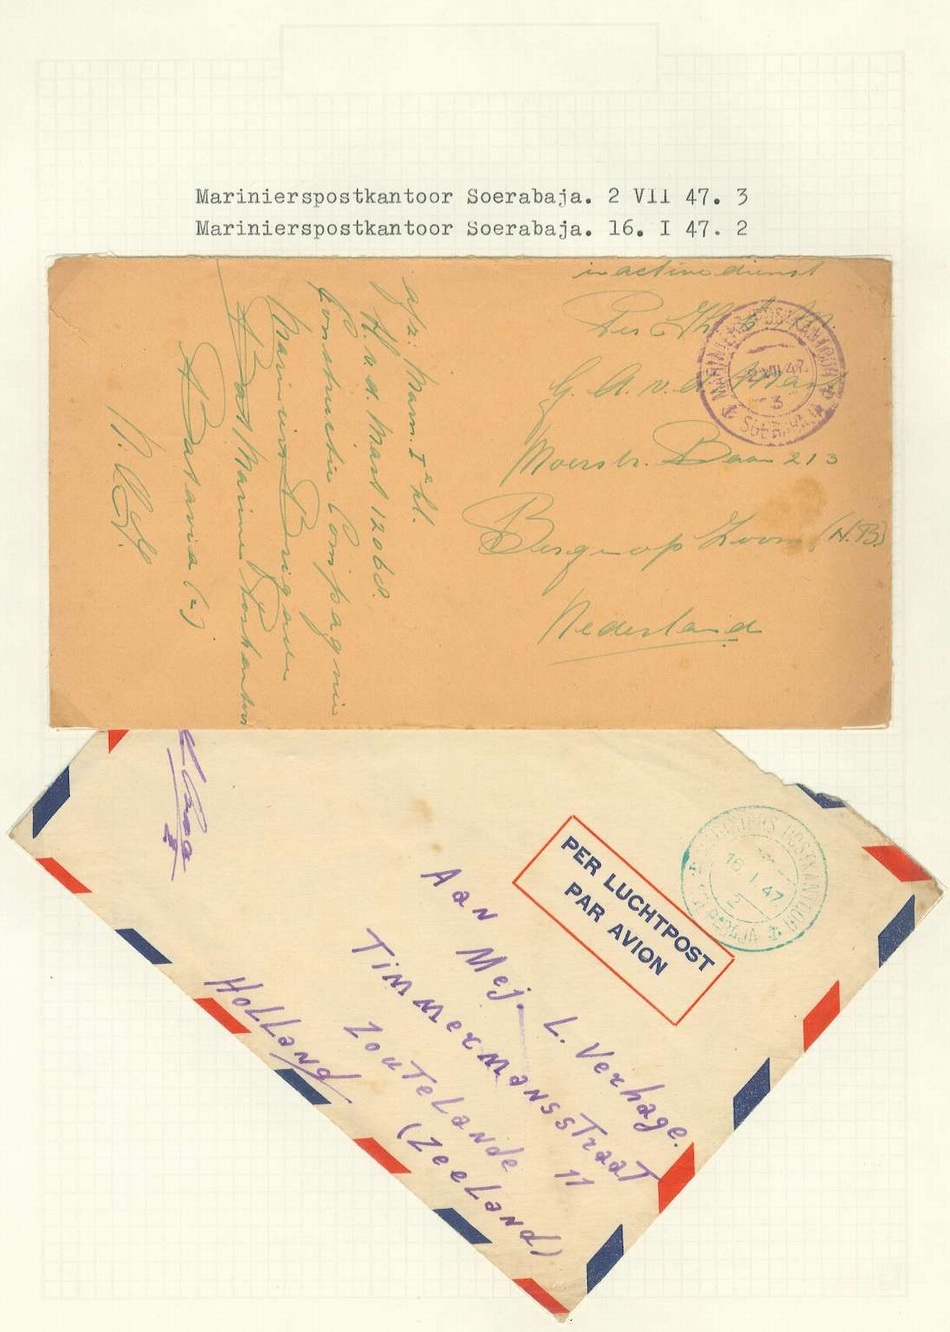 Marinierspostkantoor Soerabaja. 2 VII 47. 3
Marinierspostkantoor Soerabaja. 16. I 47. 2
in active dienst
G. A. v. d. Maas
Moerstr. Baan 213
Bergen op Zoom (N.B.)
Nederland
MARINIERS-POSTKANTOOR
2 VII 47
3
SOERABAJA
afz: Marn. I e kl.
v. d. Maas 12068.
Constructie Compagnie
Mariniers Brigade
Marine Postkantoor
Batavia (-)
PER LUCHTPOST
PAR AVION
MARINIERS-POSTKANTOOR
16 I 47
2
SOERABAJA
Aan Mej. L. Verhage.
Timmermansstraat 11
Zoutelande
(Zeeland)
Holland